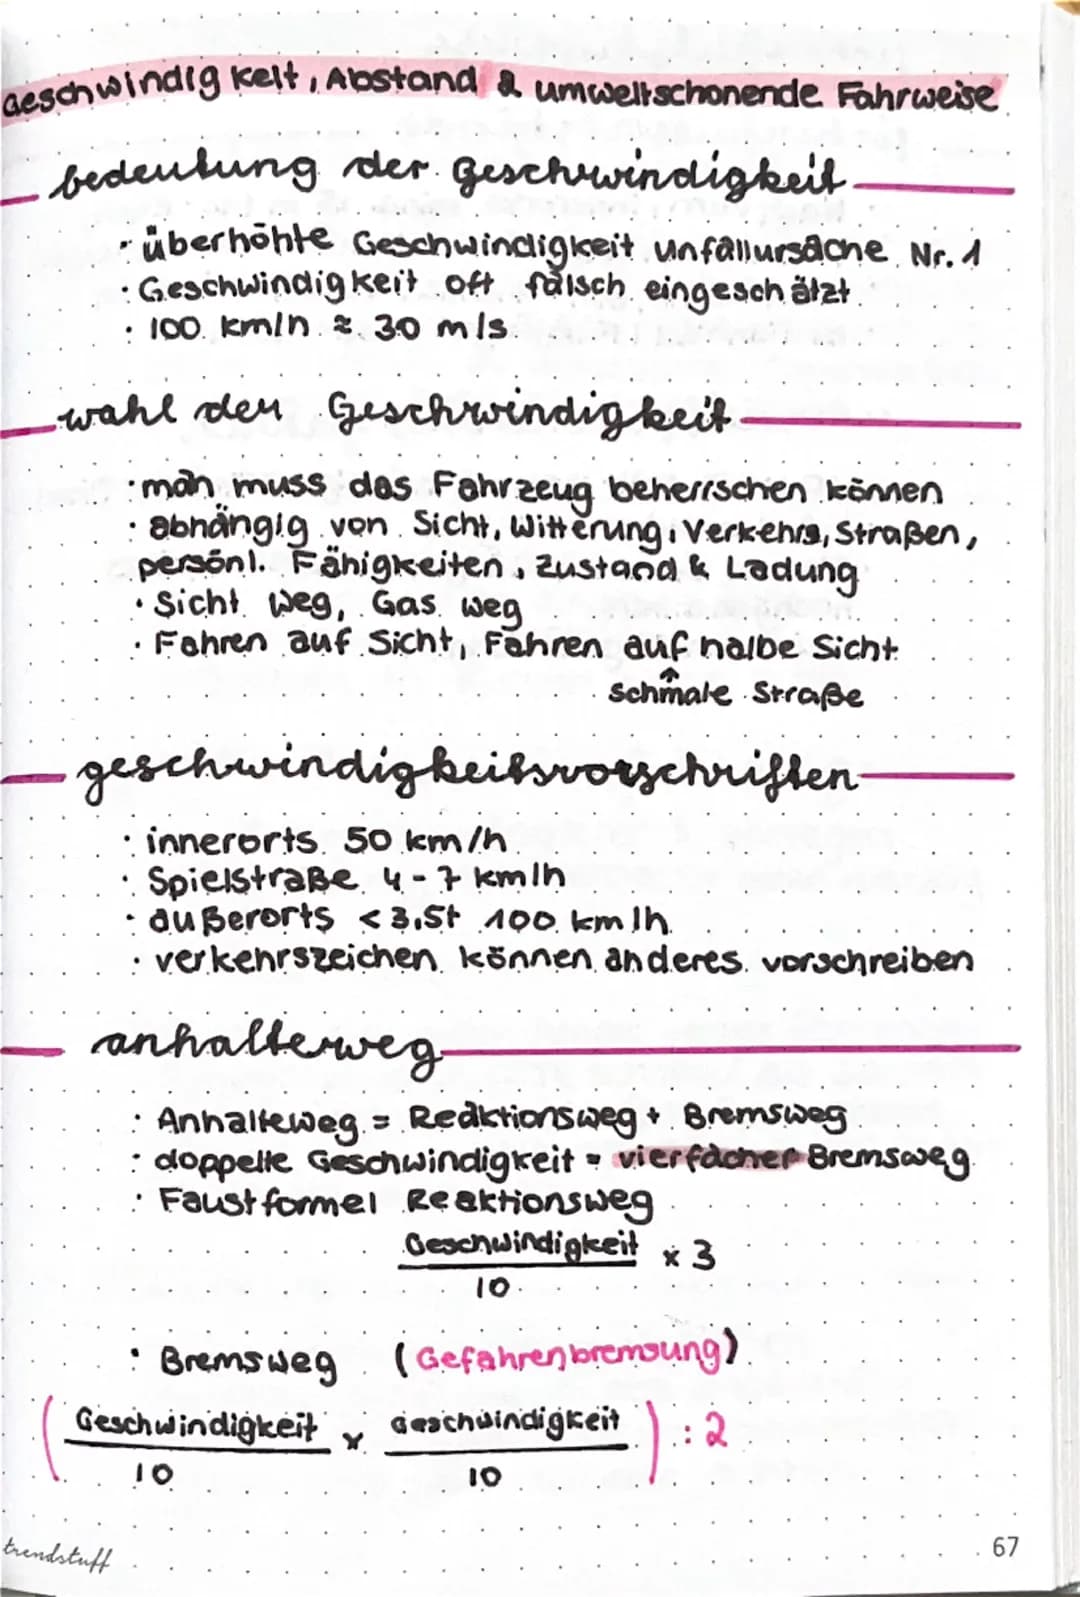 Geschwindigkeit, Abstand & umweltschonende Fahrweise
bedeutung der Geschwindigkeit
· überhöhte Geschwindigkeit Unfallursache Nr. 1
· Geschwindigkeit oft falsch eingeschätzt
· 100 km/h ≈ 30 m/s
wahl der Geschwindigkeit
· man muss das Fahrzeug beherrschen können
· abhängig von Sicht, Witterung, Verkehrs, Straßen,
persönl. Fähigkeiten, Zustand & Ladung
· Sicht weg, Gas weg
· Fahren auf Sicht, Fahren auf halbe Sicht
↑
schmale Straße
geschwindigkeitsvorschriften
· innerorts 50 km/h
· Spielstraße 4-7 km/h
· außerorts <3,5t 100 km/h
· verkehrszeichen können anderes vorschreiben
anhalterweg
· Anhalteweg = Reaktionsweg + Bremsweg
· doppelte Geschwindigkeit = vierfacher Bremsweg
· Faustformel Reaktionsweg
Geschwindigkeit x 3
10
· Bremsweg (Gefahrenbremsung)
(Geschwindigkeit x Geschwindigkeit) : 2
10 10
trendstuff 67